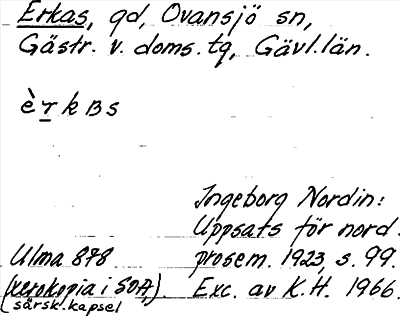 Erkas, gd, Ovansjö sn,
Gästr. v. doms. tg, Gävl. län.
è r k B s
Ingeborg Nordin:
Uppsats för nord.
Ulma 878 prosem. 1923, s. 99.
(xerokopia i SOA). Exc. av K.H. 1966.
särsk. kapsel